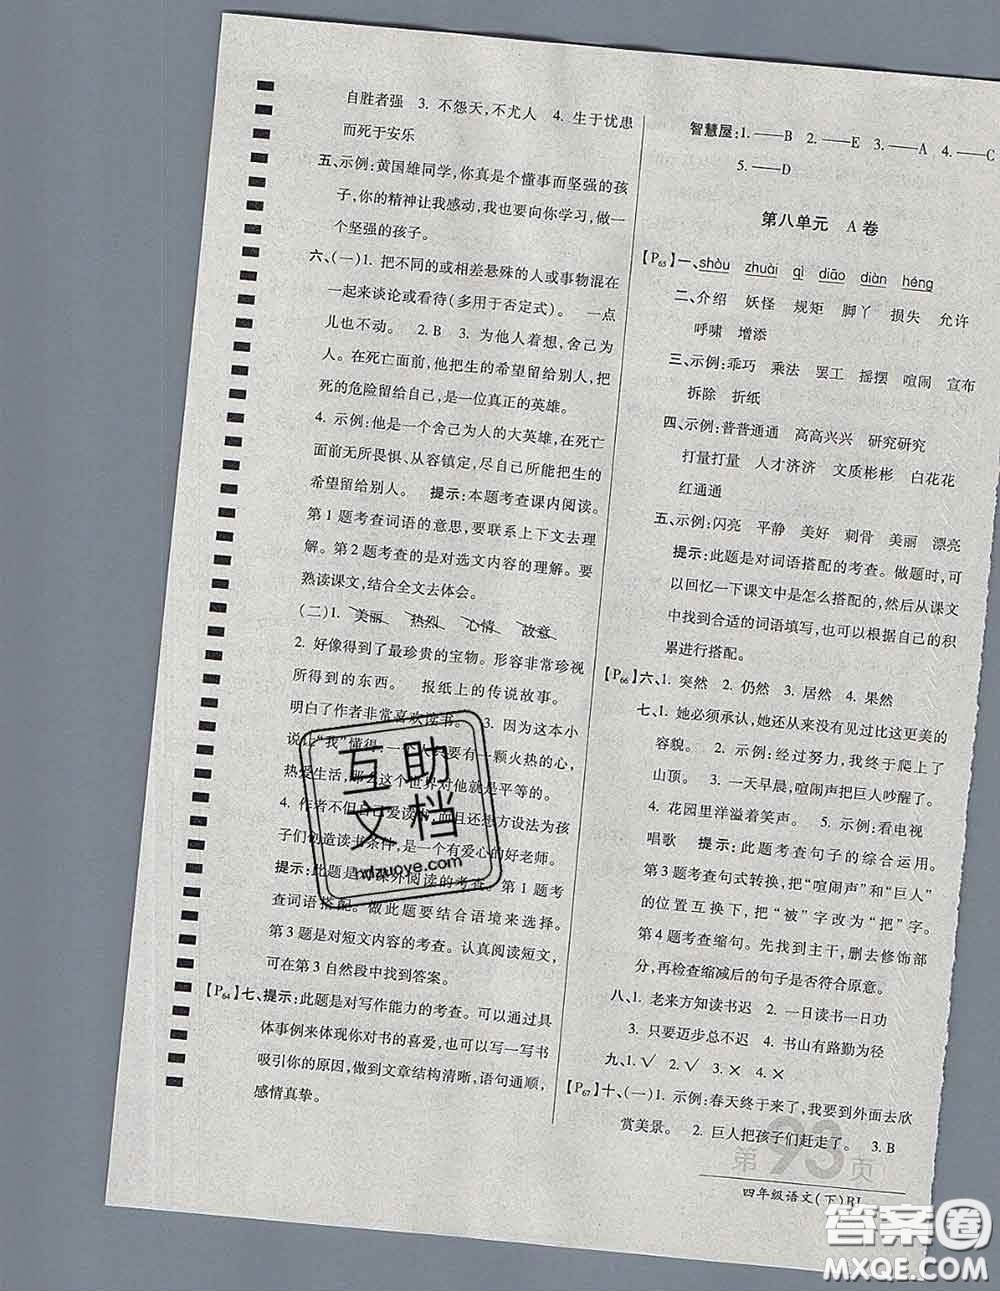 自胜者强　3. 不怨天,不尤人　4. 生于忧患
而死于安乐
五、示例:黄国雄同学,你真是个懂事而坚强的孩
子,你的精神让我感动,我也要向你学习,做一
个坚强的孩子。
六、(一)1. 把不同的或相差悬殊的人或事物混在
一起来谈论或看待(多用于否定式)。　一点
儿也不动。　2. B　3. 为他人着想,舍己为
人。在死亡面前,他把生的希望留给别人,把
死的危险留给自己,是一位真正的英雄。
4. 示例:他是一个舍己为人的大英雄,在死亡
面前无所畏惧、从容镇定,尽自己所能把生的
希望留给别人。　提示:本题考查课内阅读。
第1题考查词语的意思,要联系上下文去理
解。第2题考查的是对选文内容的理解。要
熟读课文,结合全文去体会。
(二)1. 美丽　热烈　心情　故意
2. 好像得到了最珍贵的宝物。形容非常珍视
所得到的东西。　报纸上的传说故事。
明白了作者非常喜欢读书。　3. 因为这本小
说让“我”懂得　人只要有一颗火热的心,
热爱生活,那么这个世界对他就是平等的。
4. 作者不但自己爱读书,而且还想方设法为孩
子们创造读书条件,是一个有爱心的好老师。
提示:此题是对课外阅读的考查。第1题考
查词语搭配。做此题要结合语境来选择。
第3题是对短文内容的考查。认真阅读短文,
可在第3自然段中找到答案。
【P64】七、提示:此题是对写作能力的考查。可以通过具
体事例来体现你对书的喜爱,也可以写一写书
吸引你的原因,做到文章结构清晰,语句通顺,
感情真挚。
智慧屋:1. ——B　2. ——E　3. ——A　4. ——C
5. ——D
第八单元　A卷
【P65】一、shòu　zhuài　qì　diāo　diàn　héng
二、介绍　妖怪　规矩　脚丫　损失　允许
呼啸　增添
三、示例:乖巧　乘法　罢工　摇摆　喧闹　宣布
拆除　折纸
四、示例:普普通通　高高兴兴　研究研究
打量打量　人才济济　文质彬彬　白花花
红通通
五、示例:闪亮　平静　美好　刺骨　美丽　漂亮
提示:此题是对词语搭配的考查。做题时,可
以回忆一下课文中是怎么搭配的,然后从课文
中找到合适的词语填写,也可以根据自己的积
累进行搭配。
【P66】六、1. 突然　2. 仍然　3. 居然　4. 果然
七、1. 她必须承认,她还从来没有见过比这更美的
容貌。　2. 示例:经过努力,我终于爬上了
山顶。　3. 一天早晨,喧闹声把巨人吵醒了。
4. 花园里洋溢着笑声。　5. 示例:看电视
唱歌　提示:此题考查句子的综合运用。
第3题考查句式转换,把“喧闹声”和“巨人”
的位置互换下,把“被”字改为“把”字。
第4题考查缩句。先找到主干,删去修饰部
分,再检查缩减后的句子是否符合原意。
八、1. 老来方知读书迟　2. 一日读书一日功
3. 只要迈步总不迟　4. 书山有路勤为径
九、1. √　2. √　3. ×　4. ×
【P67】十、(一)1. 示例:春天终于来了,我要到外面去欣
赏美景。　2. 巨人把孩子们赶走了。　3. B
第93页
四年级语文(下)RJ
互助
文档
hdzuoye.com
答案圈
MXQE.COM